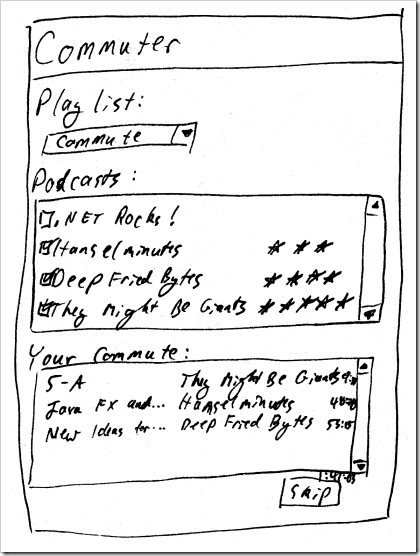 Commuter
Play list:
Commute
Podcasts:
.NET Rocks!
Hanselminutes
Deep Fried Bytes
They Might Be Giants
Your Commute:
5-A They Might Be Giants
Java FX and... Hanselminutes
New Ideas for... Deep Fried Bytes
Skip